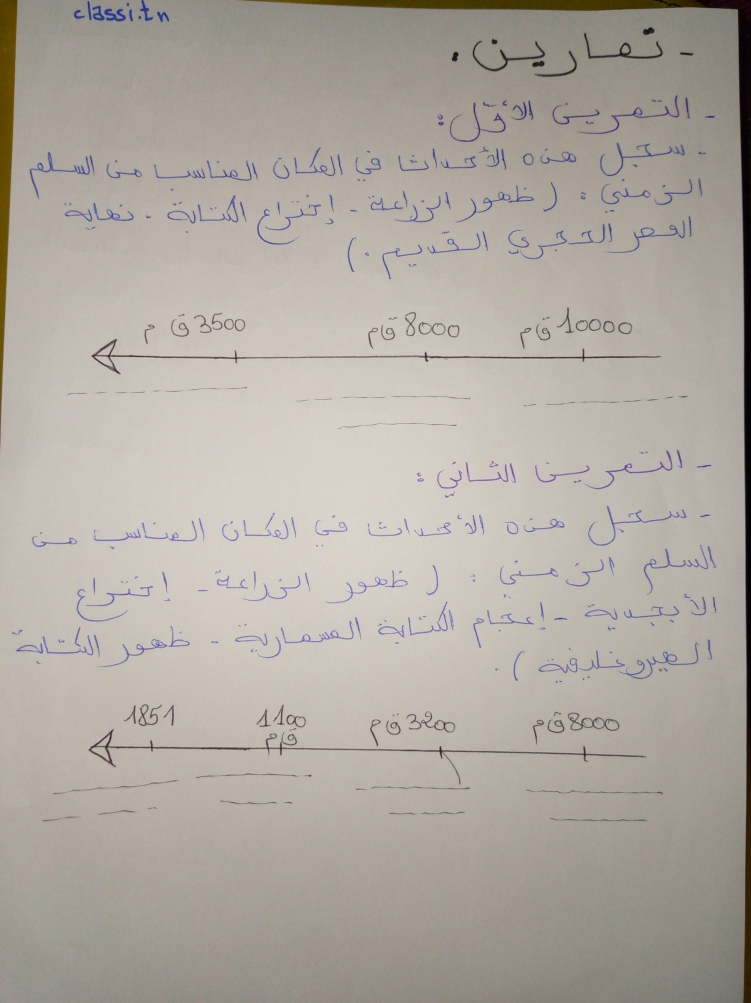 classi.tn
- تمارين.
- التمرين الأوّل:
- سجل هذه الأحداث في المكان المناسب من السلم
الزمني: (ظهور الزراعة - إختراع الكتابة - نهاية
العصر الحجري القديم.)
10000 ق م 8000 ق م 3500 ق م
- التمرين الثاني:
- سجل هذه الأحداث في المكان المناسب من
السلم الزمني: (ظهور الزراعة - إختراع
الأبجدية - إعجام الكتابة المسمارية - ظهور الكتابة
الهيروغليفية).
8000 ق م 3200 ق م 1100 ق م 1851